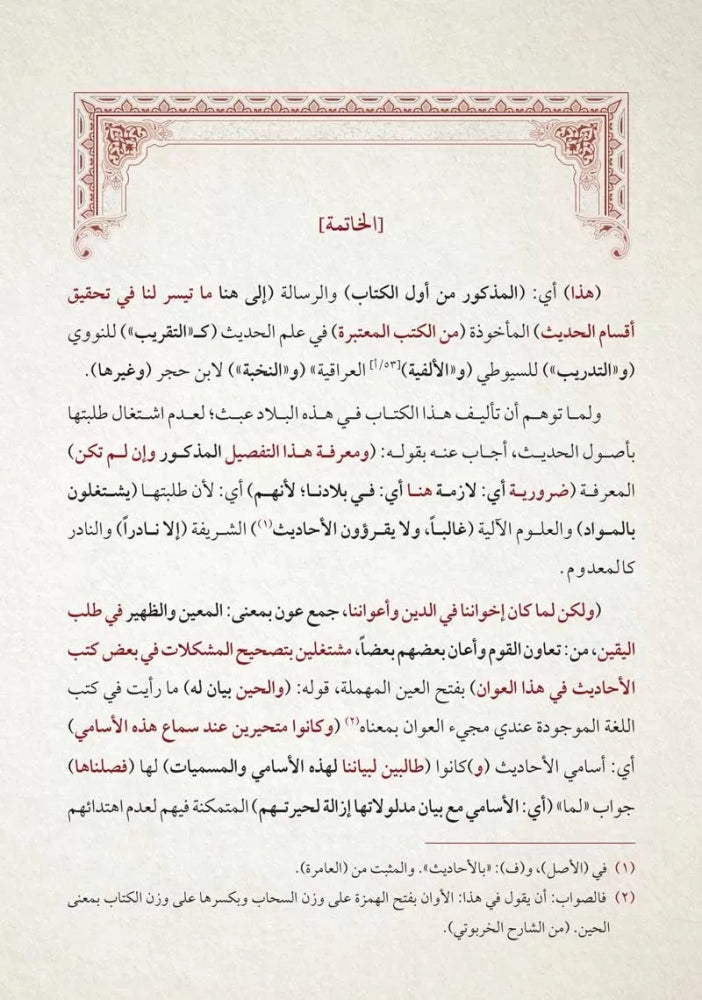 [الخاتمة]
(هذا) أي: (المذكور من أول الكتاب) والرسالة (إلى هنا ما تيسر لنا في تحقيق
أقسام الحديث) المأخوذة (من الكتب المعتبرة) في علم الحديث (كـ«التقريب») للنووي
(و«التدريب») للسيوطي (و«الألفية)[٥٣/أ] العراقية» (و«النخبة») لابن حجر (وغيرها).
ولما توهم أن تأليف هذا الكتاب في هذه البلاد عبث؛ لعدم اشتغال طلبتها
بأصول الحديث، أجاب عنه بقوله: (ومعرفة هذا التفصيل المذكور وإن لم تكن)
المعرفة (ضرورية أي: لازمة هنا أي: في بلادنا؛ لأنهم) أي: لأن طلبتها (يشتغلون
بالمواد) والعلوم الآلية (غالباً، ولا يقرؤون الأحاديث(١)) الشريفة (إلا نادراً) والنادر
كالمعدوم.
(ولكن لما كان إخواننا في الدين وأعواننا، جمع عون بمعنى: المعين والظهير في طلب
اليقين، من: تعاون القوم وأعان بعضهم بعضاً، مشتغلين بتصحيح المشكلات في بعض كتب
الأحاديث في هذا العوان) بفتح العين المهملة، قوله: (والحين بيان له) ما رأيت في كتب
اللغة الموجودة عندي مجيء العوان بمعناه(٢) (وكانوا متحيرين عند سماع هذه الأسامي)
أي: أسامي الأحاديث (و)كانوا (طالبين لبياننا لهذه الأسامي والمسميات) لها (فصلناها)
جواب «لما» (أي: الأسامي مع بيان مدلولاتها إزالة لحيرتهم) المتمكنة فيهم لعدم اهتدائهم
(١) في (الأصل)، و(ف): «بالأحاديث». والمثبت من (العامرة).
(٢) فالصواب: أن يقول في هذا: الأوان بفتح الهمزة على وزن السحاب وبكسرها على وزن الكتاب بمعنى
الحين. (من الشارح الخربوتي).